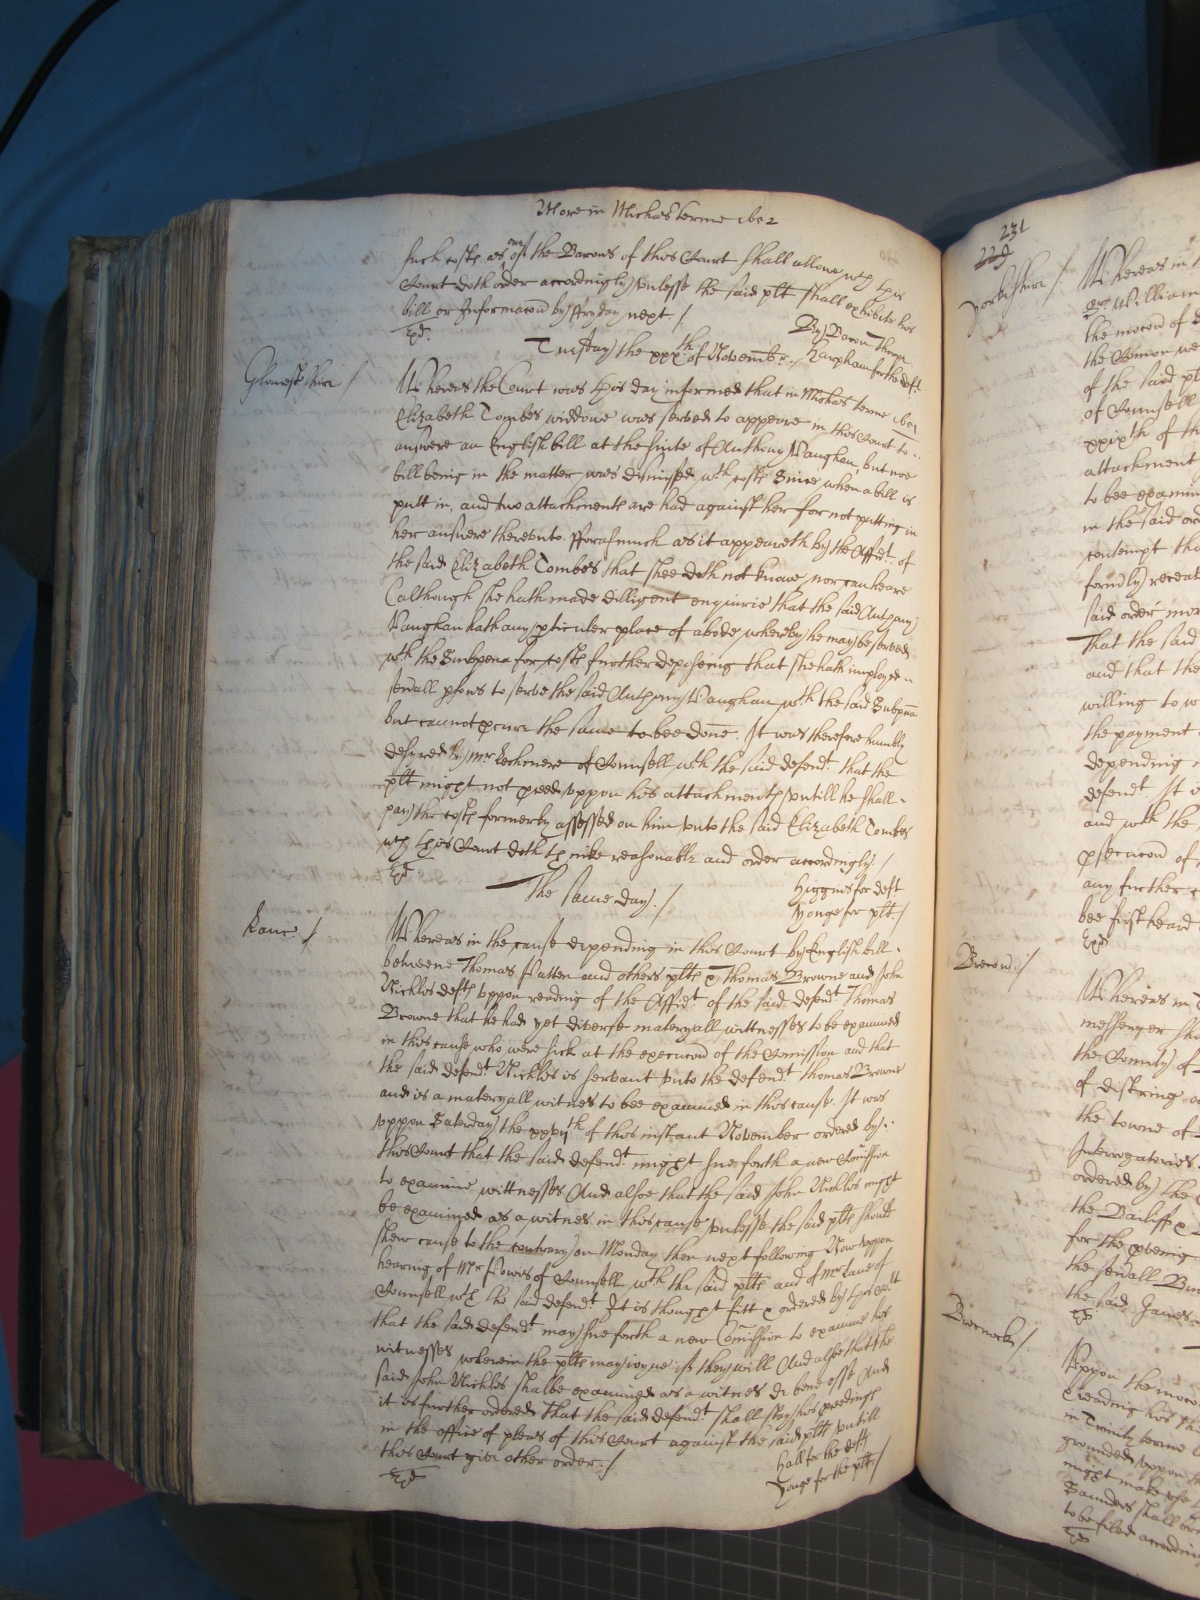 More in Michas terme 1602
such costs as one of the Barons of this Court shall allowe wch this
Court doth order accordingly unlesse the said plt shall exhibite his
bill or Informacon by ffryday next /
By Baron
for the deft
Exr
Tuesday the xxxth of Novembr /
Gloucesshire /
Whereas the Court was this day informed that in Michas terme 1601
Elizabeth Tombes widdowe was served to appeare in this Court to
answere an English bill at the suite of Anthony Vaughan, but noe
bill being in the matter was dismissed wth costs Since when a bill is
putt in, and two attachments are had against her for not putting in
her answere thereunto. fforasmuch as it appeareth by the Affidt. of
the said Elizabeth Tombes that shee doth not knowe nor can heare
(although she hath made dilligent enquirie that the said Anthony
Vaughan hath any pticuler place of abode, whereby he may be served
wth the Subpena for costs further deposing that she hath imployed
sevrall psons to serve the said Anthony Vaughan wth the said Subpena
but cannot pcure the same to bee done. It was therefore humbly
desyred by Mr Lechmere of Counsell wth the said defendt. that the
plt might not pceed uppon his attachments untill he shall
pay the costs formerly assessed on him unto the said Elizabeth Tombes
wch this Court doth thinke reasonable and order accordingly /
Exr
Higgins for deft
Yonge for plt /
The same day /
Kanc /
Whereas in the cause depending in this Court by English bill
betweene Thomas Patten and others plts & Thomas Browne and John
Nickles defts uppon reading of the Affidt. of the said defendt Thomas
Browne that he had yet diverse materyall wittnesses to be examined
in this cause who were sick at the execucon of the Comission and that
the said defendt Nickles is servant unto the defendt Thomas Browne
and is a materyall witnes to bee examined in this cause. It was
uppon Saterday the th of this instant November ordered by
this Court that the said defendt might sue forth a new Comission
to examine wittnesses And alsoe that the said John Nickles might
be examined as a witnes in this cause unlesse the said plts should
shew cause to the contrary on Monday then next following Now uppon
hearing of Mr Powis of Counsell wth the said plts and of Mr Lane of
Counsell wth the said defendt It is thought fitt & ordered by this Court
that the said defendt may sue forth a new Comission to examine his
witnesses wherein the plts may ioyne if they will And alsoe that the
said John Nickles shalbe examined as a witnes De bene esse And
it is further ordered That the said defendt shall stay his pceedings
in the office of pleas of this Court against the said plts untill
this Court give other order /
Exr
Hall for the defts
Yonge for the plt /
231
229
Yorkeshire /
Whereas in
Sr William
the mocon of
the Comon
of the said pl
of Counsell
xxixth of th
attachment
to bee examin
in the said ord
contempt tho
formly recea
said order mor
That the said
and that the
willing to w
the payment
depending
defendt. It
and wth the
psecucon of
any further
bee first heard
Exr
Brecon /
Whereas in
messenger sh
the County of
of desiring
the towne of
Interrogatories
ordered by the
the Bailiff
for the pving
the sevrall Bu
the said James
Exr
/
Uppon the moco
reading his
in Trinity terme
grounded uppon
might make
Saunders shall
to be filed according
Exr